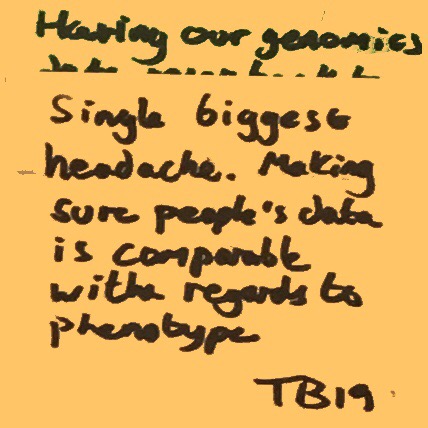 our genomics
Single biggest
headache. Making
sure people's data
is comparable
with regards to
phenotype
TB19